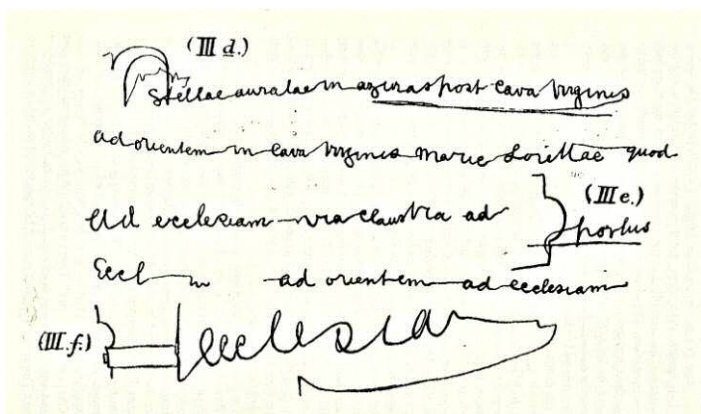 (III d.)
Stellae auratae in azuras post cava virginis
ad orientem in cava virginis Marie Lorettae quod
ad ecclesiam via claustra ad
(III e.)
portus
Eccl ad orientem ad ecclesiam
(III.f.)
ecclesia